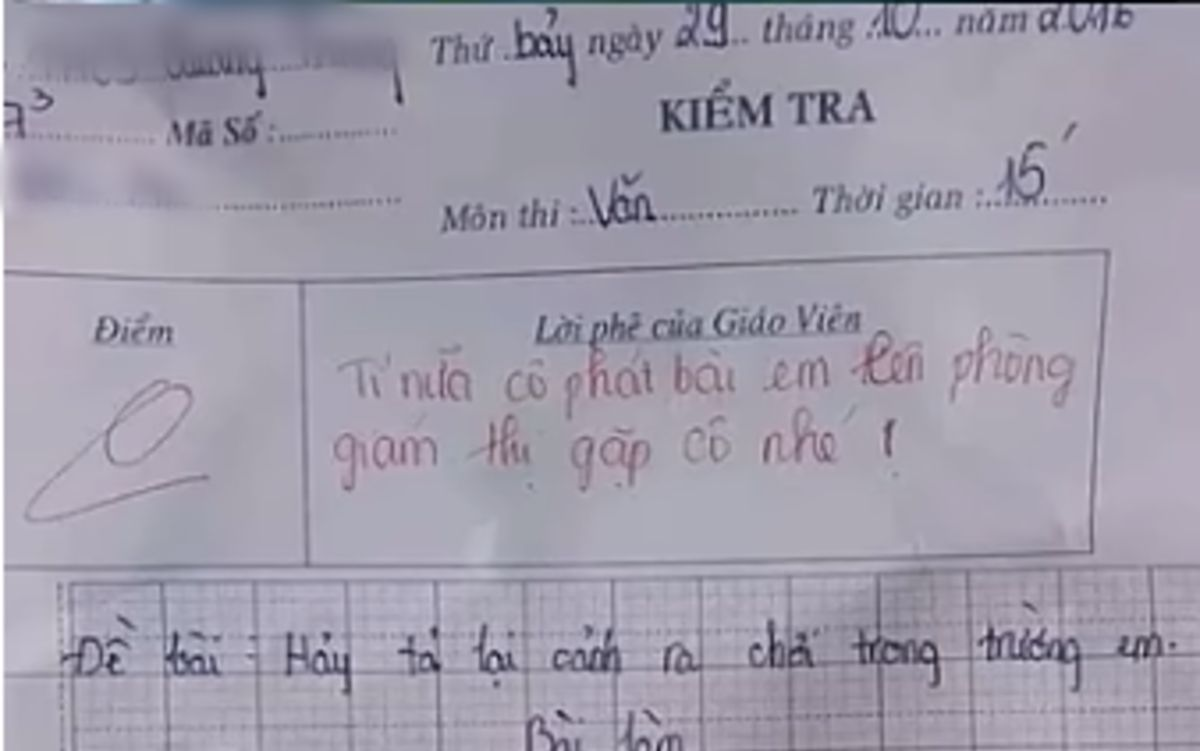 Thứ bảy ngày 29 tháng 10 năm 2016
7³ Mã Số :
KIỂM TRA
Môn thi : Văn Thời gian : 15'
Điểm
Lời phê của Giáo Viên
0
Tí nữa cô phát bài em lên phòng
giám thị gặp cô nhé !
Đề bài : Hãy tả lại cảnh ra chơi trong trường em.
Bài làm